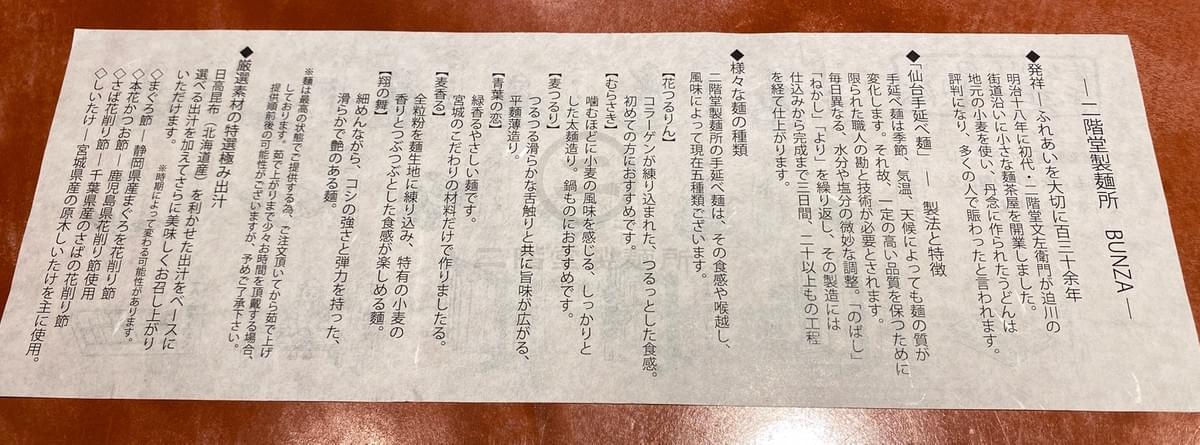 ― 二階堂製麺所 BUNZA ―
◆発祥―ふれあいを大切に百三十余年
明治十八年に初代・二階堂文左衛門が迫川の
街道沿いに小さな麺茶屋を開業しました。
地元の小麦を使い、丹念に作られたうどんは
評判になり、多くの人で賑わったと言われます。
◆「仙台手延べ麺」 ― 製法と特徴
手延べ麺は季節、気温、天候によっても麺の質が
変化します。それ故、一定の高い品質を保つために
限られた職人の勘と技術が必要とされます。
毎日異なる、水分や塩分の微妙な調整。「のばし」
「ねかし」「より」を繰り返し、その製造には
仕込みから完成まで三日間、二十以上もの工程
を経て仕上がります。
◆様々な麺の種類
二階堂製麺所の手延べ麺は、その食感や喉越し、
風味によって現在五種類ございます。
【花つるりん】
コラーゲンが練り込まれた、つるっとした食感。
初めての方におすすめです。
【むらさき】
噛むほどに小麦の風味を感じる、しっかりと
した太麺造り。鍋ものにおすすめです。
【麦つるり】
つるつる滑らかな舌触りと共に旨味が広がる、
平麺薄造り。
【青葉の恋】
緑香るやさしい麺です。
宮城のこだわりの材料だけで作りましたる。
【麦香る】
全粒粉を麺生地に練り込み、特有の小麦の
香りとつぶつぶとした食感が楽しめる麺。
【翔の舞】
細めんながら、コシの強さと弾力を持った、
滑らかで艶のある麺。
※麺は最高の状態でご提供する為、ご注文頂いてから茹で上げ
しております。茹で上がりまで少々お時間を頂戴する場合、
提供順前後の可能性がございますが、予めご了承下さい。
◆厳選素材の特選極み出汁
日高昆布(北海道産)を利かせた出汁をベースに
選べる出汁を加えてさらに美味しくお召し上がり
いただけます。
※時期によって変わる可能性があります。
◇まぐろ節―静岡県産まぐろを花削り節
◇本花かつお節―鹿児島県花削り節
◇さば花削り節―千葉県産のさばの花削り節使用
◇しいたけ―宮城県産の原木しいたけを主に使用。